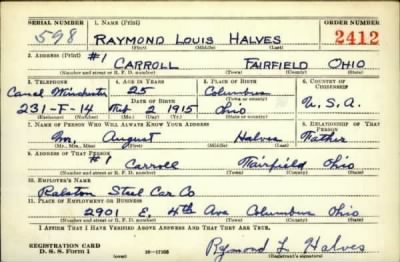 SERIAL NUMBER 1. NAME (Print) ORDER NUMBER
598 RAYMOND LOUIS HALVES 2412
(First) (Middle) (Last)
2. ADDRESS (Print)
#1 CARROLL FAIRFIELD OHIO
(Number and street or R. F. D. number) (Town) (County) (State)
3. TELEPHONE 4. AGE IN YEARS 5. PLACE OF BIRTH 6. COUNTRY OF CITIZENSHIP
Canal Winchester 25 Columbus
DATE OF BIRTH (Town or county)
231-F-14 Feb 2 1915 Ohio U.S.A.
(Exchange) (Number) (Mo.) (Day) (Yr.) (State or country)
7. NAME OF PERSON WHO WILL ALWAYS KNOW YOUR ADDRESS 8. RELATIONSHIP OF THAT PERSON
Wm. August Halves Father
(Mr., Mrs., Miss) (First) (Middle) (Last)
9. ADDRESS OF THAT PERSON
#1 Carroll Fairfield Ohio
(Number and street or R. F. D. number) (Town) (County) (State)
10. EMPLOYER'S NAME
Ralston Steel Car Co
11. PLACE OF EMPLOYMENT OR BUSINESS
2901 E. 4th Ave Columbus Ohio
(Number and street or R. F. D. number) (Town) (County) (State)
I AFFIRM THAT I HAVE VERIFIED ABOVE ANSWERS AND THAT THEY ARE TRUE.
REGISTRATION CARD
D. S. S. Form 1 Raymond L Halves
(Registrant's signature)